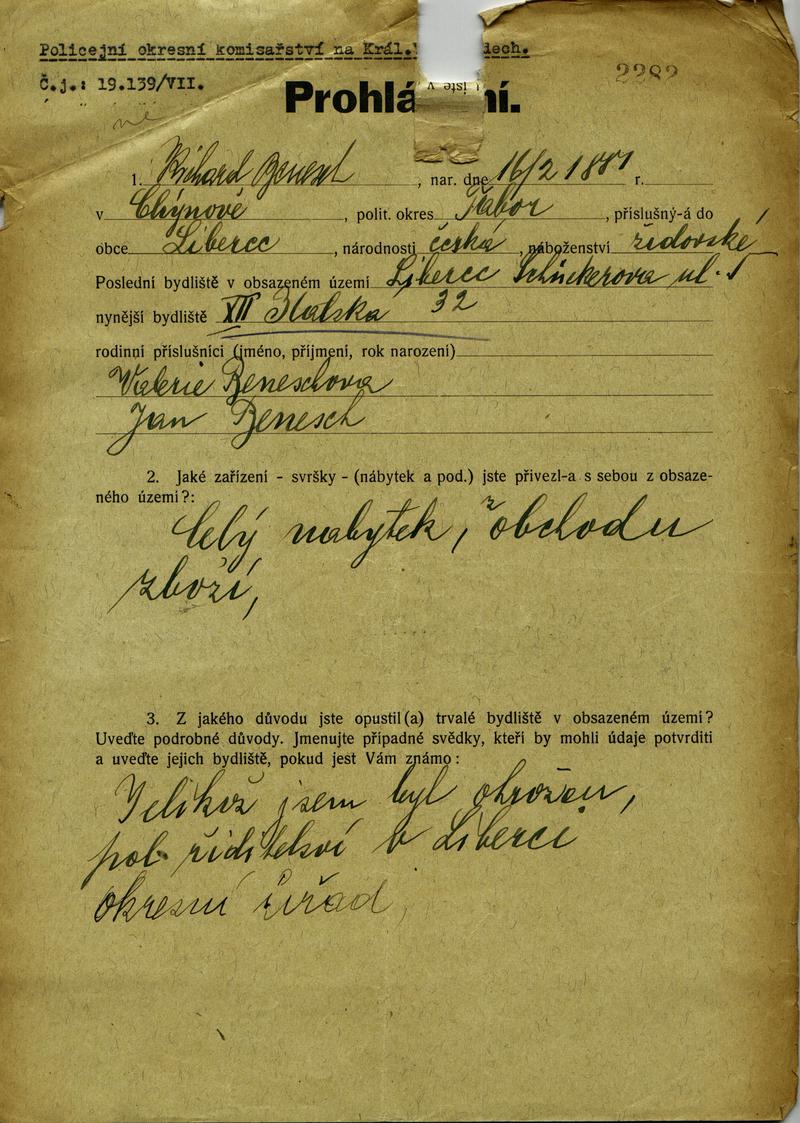 Policejní okresní komisařství na Král. dech.
Č.j.: 19.139/VII.
2282
Prohlá ní.
né
1. Richard Benesch, nar. dne 16/2 1881 r.
v Chýnově, polit. okres Tábor, příslušný-á do
obce Liberec, národnosti česká, náboženství židovské
Poslední bydliště v obsazeném území Liberec Schückerova ul. 1
nynější bydliště XII Italska 32
rodinní příslušníci (jméno, příjmení, rok narození)
Valerie Beneschova
Jan Benesch
2. Jaké zařízení - svršky - (nábytek a pod.) jste přivezl-a s sebou z obsaze-
ného území?:
Celý nabytek, z obchodu
zboží,
3. Z jakého důvodu jste opustil(a) trvalé bydliště v obsazeném území?
Uveďte podrobné důvody. Jmenujte případné svědky, kteří by mohli údaje potvrditi
a uveďte jejich bydliště, pokud jest Vám známo:
Jelikož jsem byl ohrožen,
pol. řiditelsví v Liberci
okresní úřad,